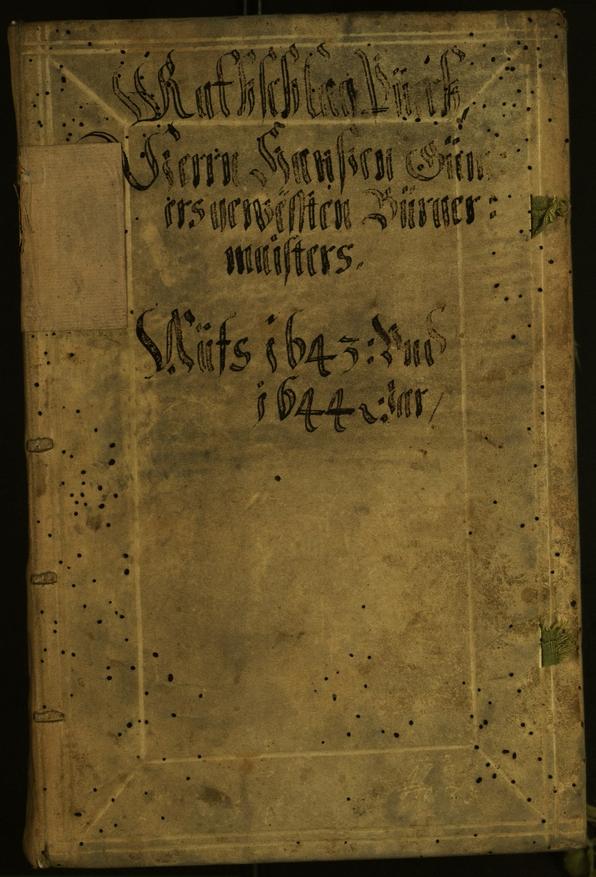 Rathschlag Buech
Herrn Hanßen Gün
ers gewesten Bürger:
maisters.
Aüfs 1643: Vnd
1644 Jar/